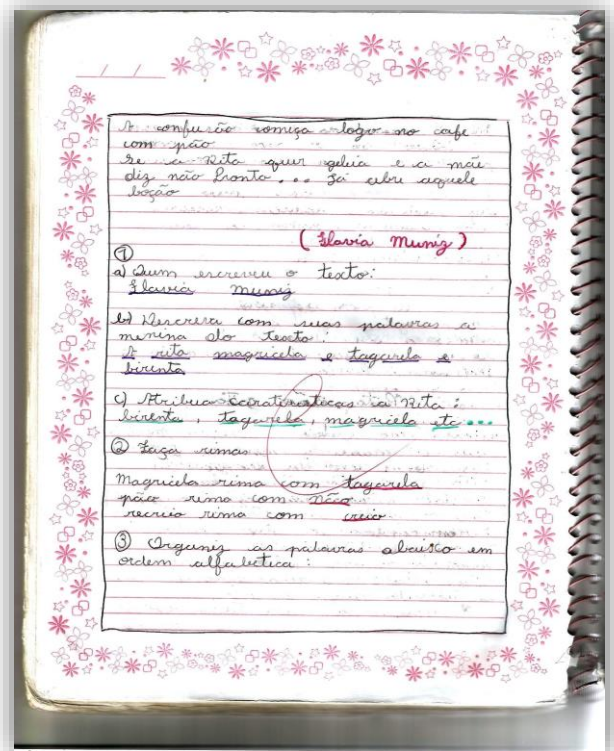 A confusão começa logo no cafe
com pão
se a Rita quer geleia e a mãe
diz não Pronto... Já abre aquele
bocão
(Flavia Muniz)
①
a) Quem escreveu o texto:
Flavia Muniz
b) Descreva com suas palavras a
menina do texto:
A rita magricela e tagarela e
birenta
c) Atribua caraterísticas a Rita:
birenta, tagarela, magricela etc...
② Faça rimas
Magricela rima com tagarela
pão rima com não
recreio rima com creio
③ Organiz as palavras abaixo em
ordem alfabetica: